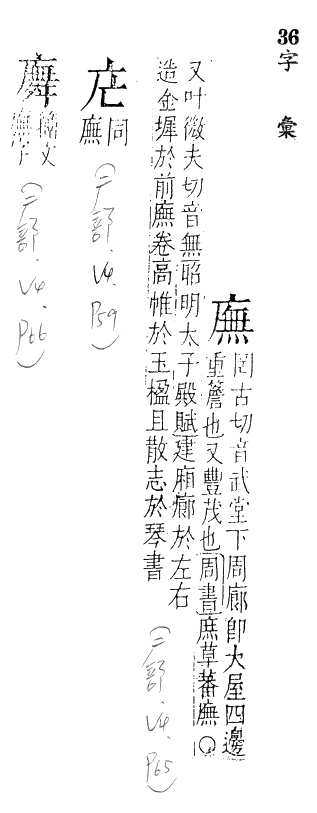 36
字彙
廡
罔古切音武堂下周廊卽大屋四邊
重簷也又豐茂也周書庶草蕃廡○
又叶微夫切音無昭明太子殿賦建廂廊於左右
造金墀於前廡卷高帷於玉楹且散志於琴書
(广部.V4.P65)
庑
同廡
(广部.V4.P59)
籒文廡字
(广部.V4.P66)